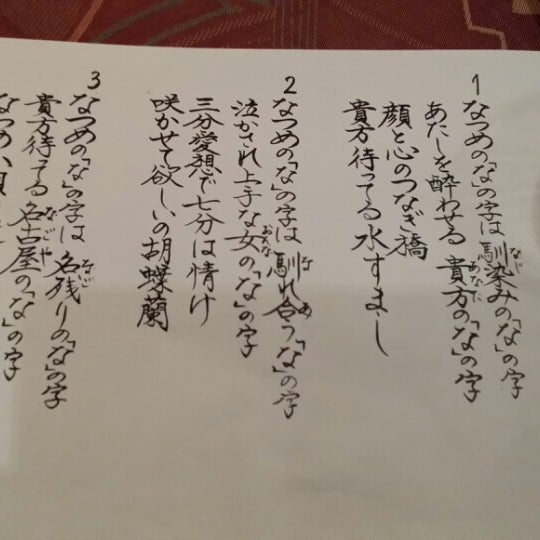 1
なつめの「な」の字は馴染みの「な」の字
あたしを酔わせる貴方の「な」の字
顔と心のつなぎ橋
貴方待ってる水すまし
2
なつめの「な」の字は馴れ合う「な」の字
泣かされ上手な女の「な」の字
三分愛想で七分は情け
咲かせて欲しいの胡蝶蘭
3
なつめの「な」の字は名残りの「な」の字
貴方待てる名古屋の「な」の字